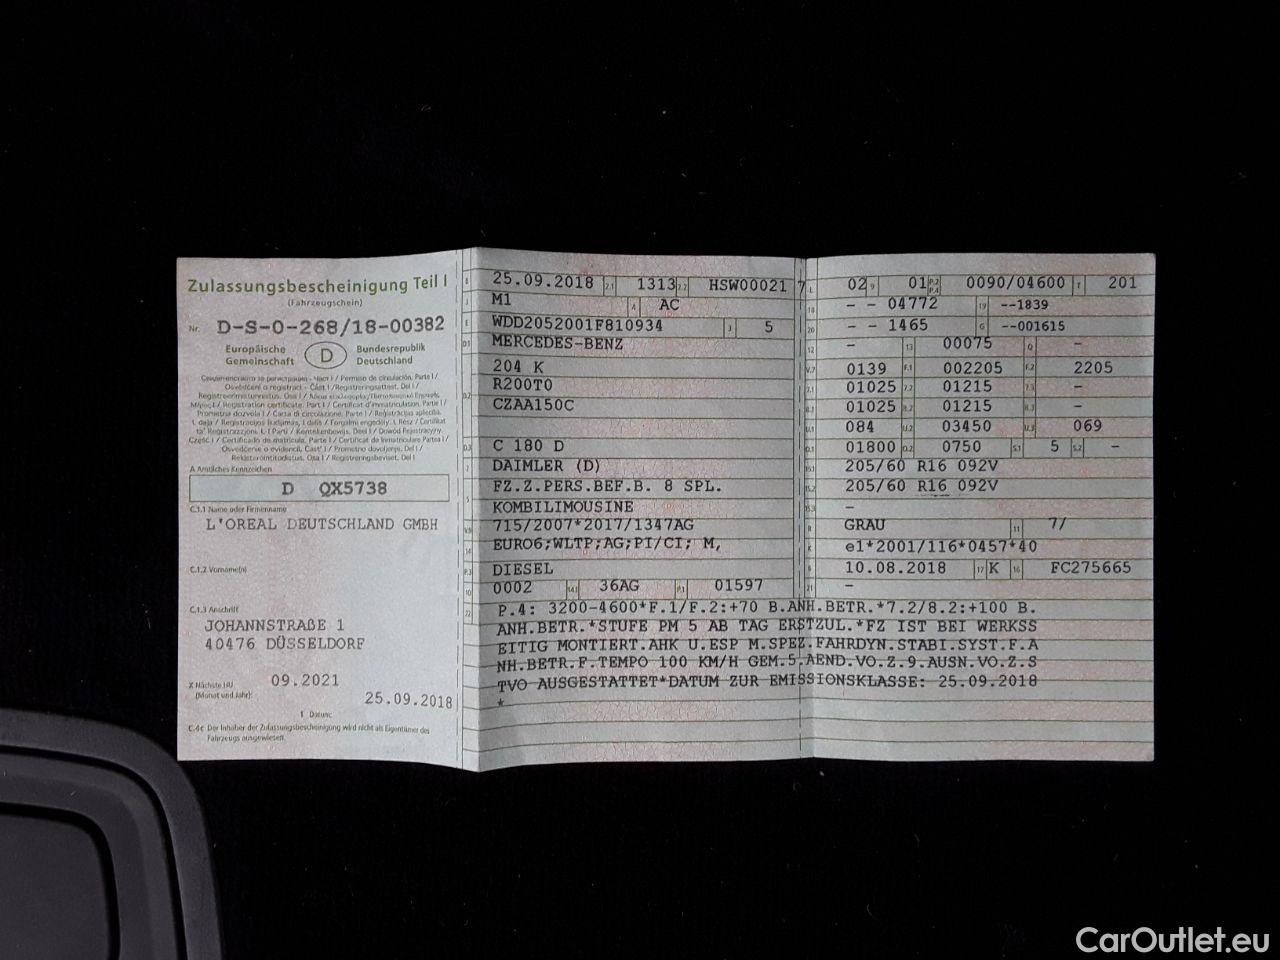 Zulassungsbescheinigung Teil I
(Fahrzeugschein)
Nr. D-S-0-268/18-00382
Europäische Gemeinschaft D Bundesrepublik Deutschland
A Amtliches Kennzeichen
D QX5738
C.1.1 Name oder Firmenname
L'OREAL DEUTSCHLAND GMBH
C.1.2 Vorname(n)
C.1.3 Anschrift
JOHANNSTRAßE 1
40476 DÜSSELDORF
X Nächste HU (Monat und Jahr): 09.2021
25.09.2018
I Datum:
C.4c Der Inhaber der Zulassungsbescheinigung wird nicht als Eigentümer des
Fahrzeugs ausgewiesen.
B 25.09.2018 2.1 1313 2.2 HSW00021 7
J M1 4 AC
E WDD2052001F810934 3 5
D.1 MERCEDES-BENZ
204 K
D.2 R200T0
CZAA150C
D.3 C 180 D
2 DAIMLER (D)
5 FZ.Z.PERS.BEF.B. 8 SPL.
KOMBILIMOUSINE
V.9 715/2007*2017/1347AG
14 EURO6;WLTP;AG;PI/CI; M,
P.3 DIESEL
10 0002 14.1 36AG P.1 01597
L 02 9 01 P.2 P.4 0090/04600 T 201
18 - - 04772 19 --1839
20 - - 1465 G --001615
12 - 13 00075 Q -
V.7 0139 F.1 002205 F.2 2205
7.1 01025 7.2 01215 7.3 -
8.1 01025 8.2 01215 8.3 -
U.1 084 U.2 03450 U.3 069
O.1 01800 O.2 0750 S.1 5 S.2 -
15.1 205/60 R16 092V
15.2 205/60 R16 092V
15.3 -
R GRAU 11 7/
K e1*2001/116*0457*40
6 10.08.2018 17 K 16 FC275665
21 -
22 P.4: 3200-4600*F.1/F.2:+70 B.ANH.BETR.*7.2/8.2:+100 B.
ANH.BETR.*STUFE PM 5 AB TAG ERSTZUL.*FZ IST BEI WERKSS
EITIG MONTIERT.AHK U.ESP M.SPEZ.FAHRDYN.STABI.SYST.F.A
NH.BETR.F.TEMPO 100 KM/H GEM.5.AEND.VO.Z.9.AUSN.VO.Z.S
TVO AUSGESTATTET*DATUM ZUR EMISSIONSKLASSE: 25.09.2018
*
CarOutlet.eu